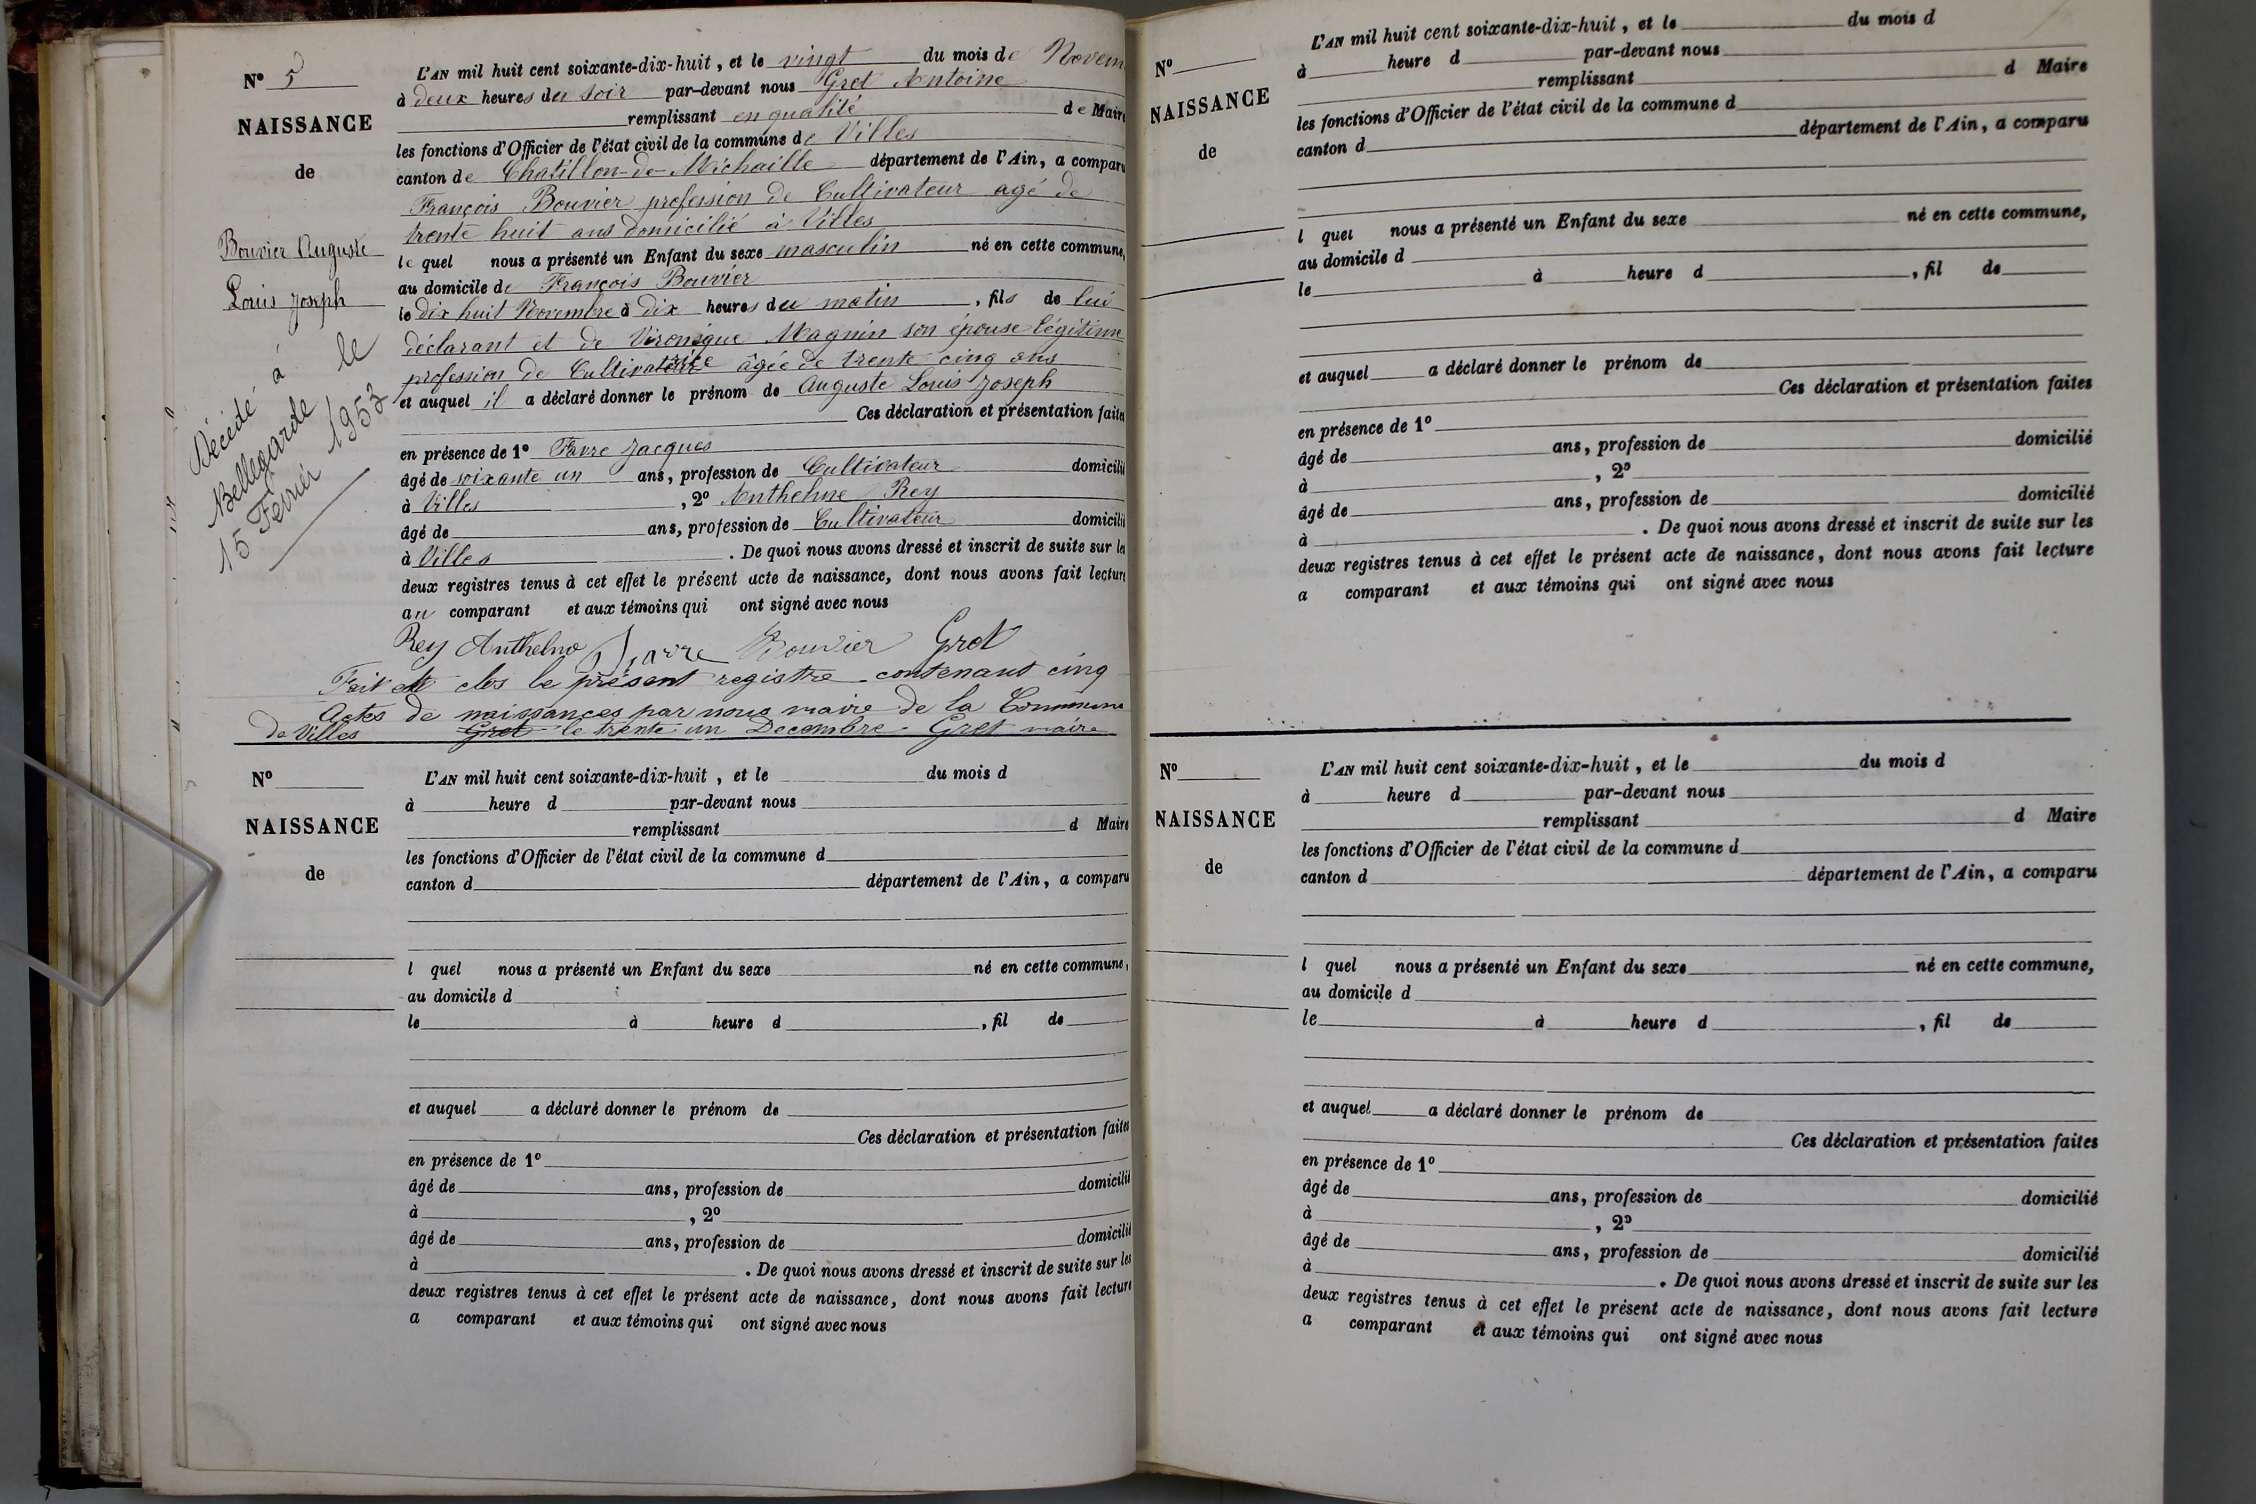 N° 5
NAISSANCE
de
Bouvier Auguste
Louis Joseph
Décédé à
Bellegarde le
15 Février 1953
L'AN mil huit cent soixante-dix-huit, et le vingt du mois de Novem
à deux heures du soir par-devant nous Gret Antoine
remplissant en qualité de Maire
les fonctions d'Officier de l'état civil de la commune de Villes
canton de Chatillon-de-Michaille département de l'Ain, a comparu
François Bouvier profession de Cultivateur agé de
trente huit ans domicilié à Villes
le quel nous a présenté un Enfant du sexe masculin né en cette commune,
au domicile de François Bouvier
le dix huit Novembre à dix heures du matin, fils de lui
déclarant et de Véronique Magnin son épouse légitime
profession de Cultivatrice âgée de trente cinq ans
et auquel il a déclaré donner le prénom de Auguste Louis Joseph
Ces déclaration et présentation faites
en présence de 1° Favre Jacques
âgé de soixante un ans, profession de Cultivateur domicilié
à Villes, 2° Anthelme Rey
âgé de ans, profession de Cultivateur domicilié
à Villes. De quoi nous avons dressé et inscrit de suite sur les
deux registres tenus à cet effet le présent acte de naissance, dont nous avons fait lecture
au comparant et aux témoins qui ont signé avec nous
Rey Anthelme Favre Bouvier Gret
Fait et clos le présent registre contenant cinq
Actes de naissances par nous maire de la Commune
de Villes Gret le trente un Decembre. Gret maire
N°
NAISSANCE
de
L'AN mil huit cent soixante-dix-huit, et le du mois d
à heure d par-devant nous
remplissant d Maire
les fonctions d'Officier de l'état civil de la commune d
canton d département de l'Ain, a comparu
l quel nous a présenté un Enfant du sexe né en cette commune,
au domicile d
le à heure d , fil de
et auquel a déclaré donner le prénom de
Ces déclaration et présentation faites
en présence de 1°
âgé de ans, profession de domicilié
à , 2°
âgé de ans, profession de domicilié
à . De quoi nous avons dressé et inscrit de suite sur les
deux registres tenus à cet effet le présent acte de naissance, dont nous avons fait lecture
a comparant et aux témoins qui ont signé avec nous
N°
NAISSANCE
de
L'AN mil huit cent soixante-dix-huit, et le du mois d
à heure d par-devant nous
remplissant d Maire
les fonctions d'Officier de l'état civil de la commune d
canton d département de l'Ain, a comparu
l quel nous a présenté un Enfant du sexe né en cette commune,
au domicile d
le à heure d , fil de
et auquel a déclaré donner le prénom de
Ces déclaration et présentation faites
en présence de 1°
âgé de ans, profession de domicilié
à , 2°
âgé de ans, profession de domicilié
à . De quoi nous avons dressé et inscrit de suite sur les
deux registres tenus à cet effet le présent acte de naissance, dont nous avons fait lecture
a comparant et aux témoins qui ont signé avec nous
N°
NAISSANCE
de
L'AN mil huit cent soixante-dix-huit, et le du mois d
à heure d par-devant nous
remplissant d Maire
les fonctions d'Officier de l'état civil de la commune d
canton d département de l'Ain, a comparu
l quel nous a présenté un Enfant du sexe né en cette commune,
au domicile d
le à heure d , fil de
et auquel a déclaré donner le prénom de
Ces déclaration et présentation faites
en présence de 1°
âgé de ans, profession de domicilié
à , 2°
âgé de ans, profession de domicilié
à . De quoi nous avons dressé et inscrit de suite sur les
deux registres tenus à cet effet le présent acte de naissance, dont nous avons fait lecture
a comparant et aux témoins qui ont signé avec nous